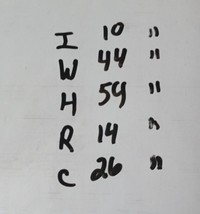 I 10 "
W 44 "
H 59 "
R 14 "
C 26 "